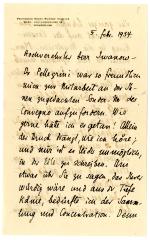 5. Febr. 1934
Hochverehrter Herr Iwanow,
De Pellegrini war so freundlich
mich zur Mitarbeit an der Ih-
nen zugedachten Sonder No. des
Convegno aufzufordern. Wie
gerne hätte ich es getan! Allein
der Druck drängt, wie ich höre;
und mir ist es nicht möglich,
in der Eile zu schreiben. Um
etwas über Sie zu sagen, das Ihrer
würdig wäre und aus der Tiefe
käme, bedürfte ich der Samm-
lung und Concentration. Denn